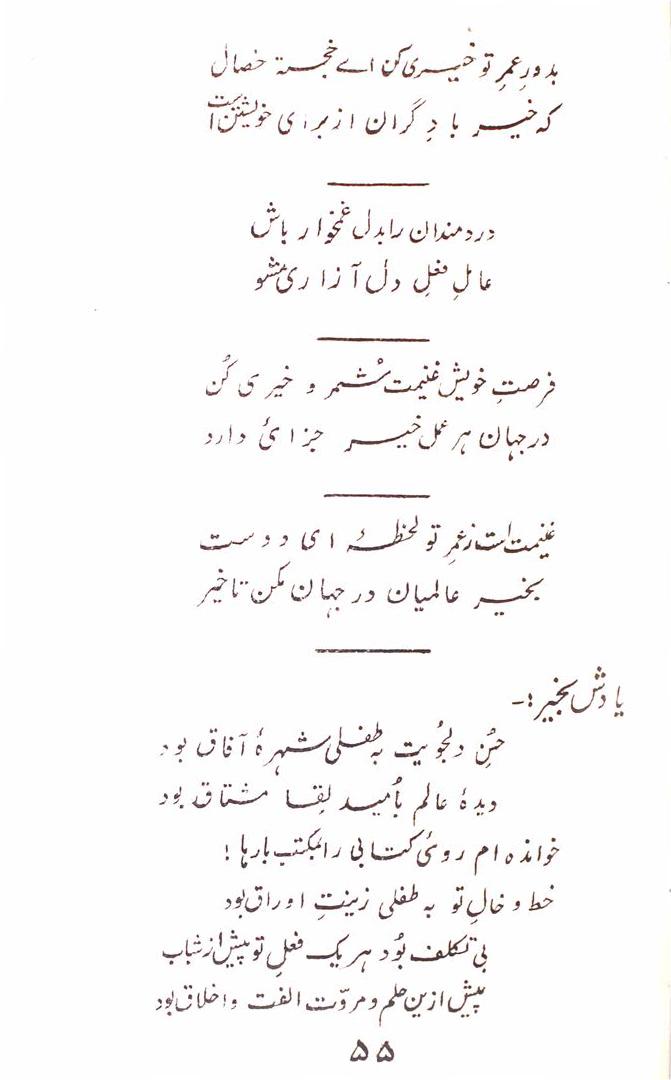 بدورِ عمرِ تو خیری کن اے خجستہ خصال
کہ خیر با دِگران از برای خویشتن است
دردمندان را بدل غمخوار باش
عاملِ فعلِ دل آزاری مشو
فرصتِ خویش غنیمت شُمر و خیری کُن
در جہان ہر عملِ خیر جزائ دارد
غنیمت است ز عمرِ تو لحظۂ ای دوست
بخیر عالمیان در جہان مکن تاخیر
یادش بخیر :-
حُسنِ دلجُویت بہ طفلی شہرۂ آفاق بود
دیدۂ عالم بأمید لِقا مشتاق بود
خواندہ ام روئ کتابی را بمکتب بارہا !
خط و خالِ تو بہ طفلی زینتِ اوراق بود
بی تکلف بُود ہر یک فعلِ تو پیش از شباب
پیش ازین حلم و مروّت الفت و اخلاق بود
۵۵